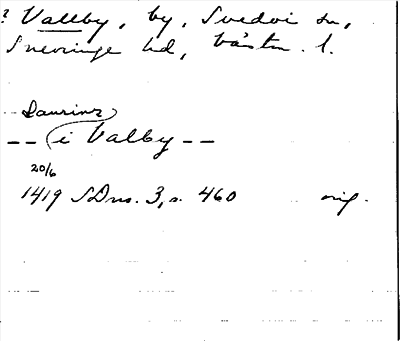 ? Vallby, by, Svedvi sn,
Snevringe hd, Västm. l.
Laurinz
-- (i Valby --
20/6
1419 SDns. 3, s. 460 orig.